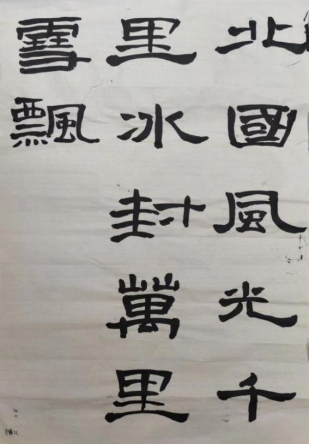 北國風光千
里冰封萬里
雪飄